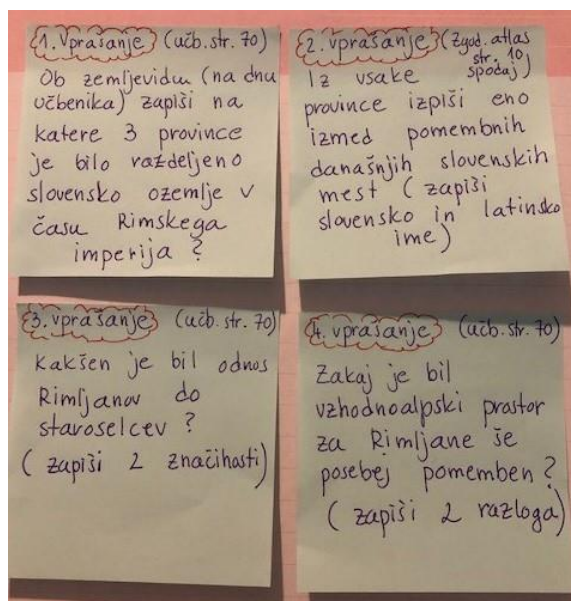 1. vprašanje (učb. str. 70)
Ob zemljevidu (na dnu
učbenika) zapiši na
katere 3 province
je bilo razdeljeno
slovensko ozemlje v
času Rimskega
imperija?
2. vprašanje (zgod. atlas
str. 10
spodaj)
Iz vsake
province izpiši eno
izmed pomembnih
današnjih slovenskih
mest (zapiši
slovensko in latinsko
ime)
3. vprašanje (učb. str. 70)
Kakšen je bil odnos
Rimljanov do
staroselcev?
(zapiši 2 značilnosti)
4. vprašanje (učb. str. 70)
Zakaj je bil
vzhodnoalpski prostor
za Rimljane še
posebej pomemben?
(zapiši 2 razloga)